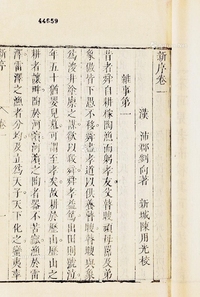 44659
新序卷一
漢 沛郡劉向著 新城陳用光校
雜事第一
昔者舜自耕稼陶漁而躬孝友父瞽瞍頑母嚚及弟
象傲皆下愚不移舜盡孝道以供養瞽瞍瞽瞍與象
為浚井塗廩之謀欲以殺舜舜孝益篤出田則號泣
年五十猶嬰兒慕可謂至孝矣故耕於歷山歷山之
耕者讓畔陶於河濱河濱之陶者器不苦窳漁於雷
澤雷澤之漁者分均及立為天子天下化之蠻夷率
新序 卷一